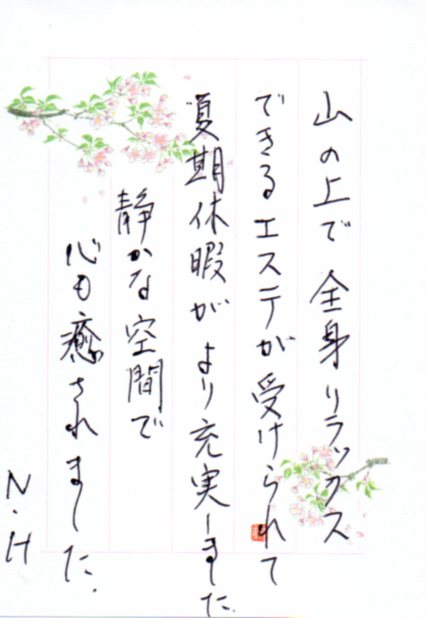 山の上で全身リラックス
できるエステが受けられて
夏期休暇がより充実しました
静かな空間で
心も癒されました.
N.H